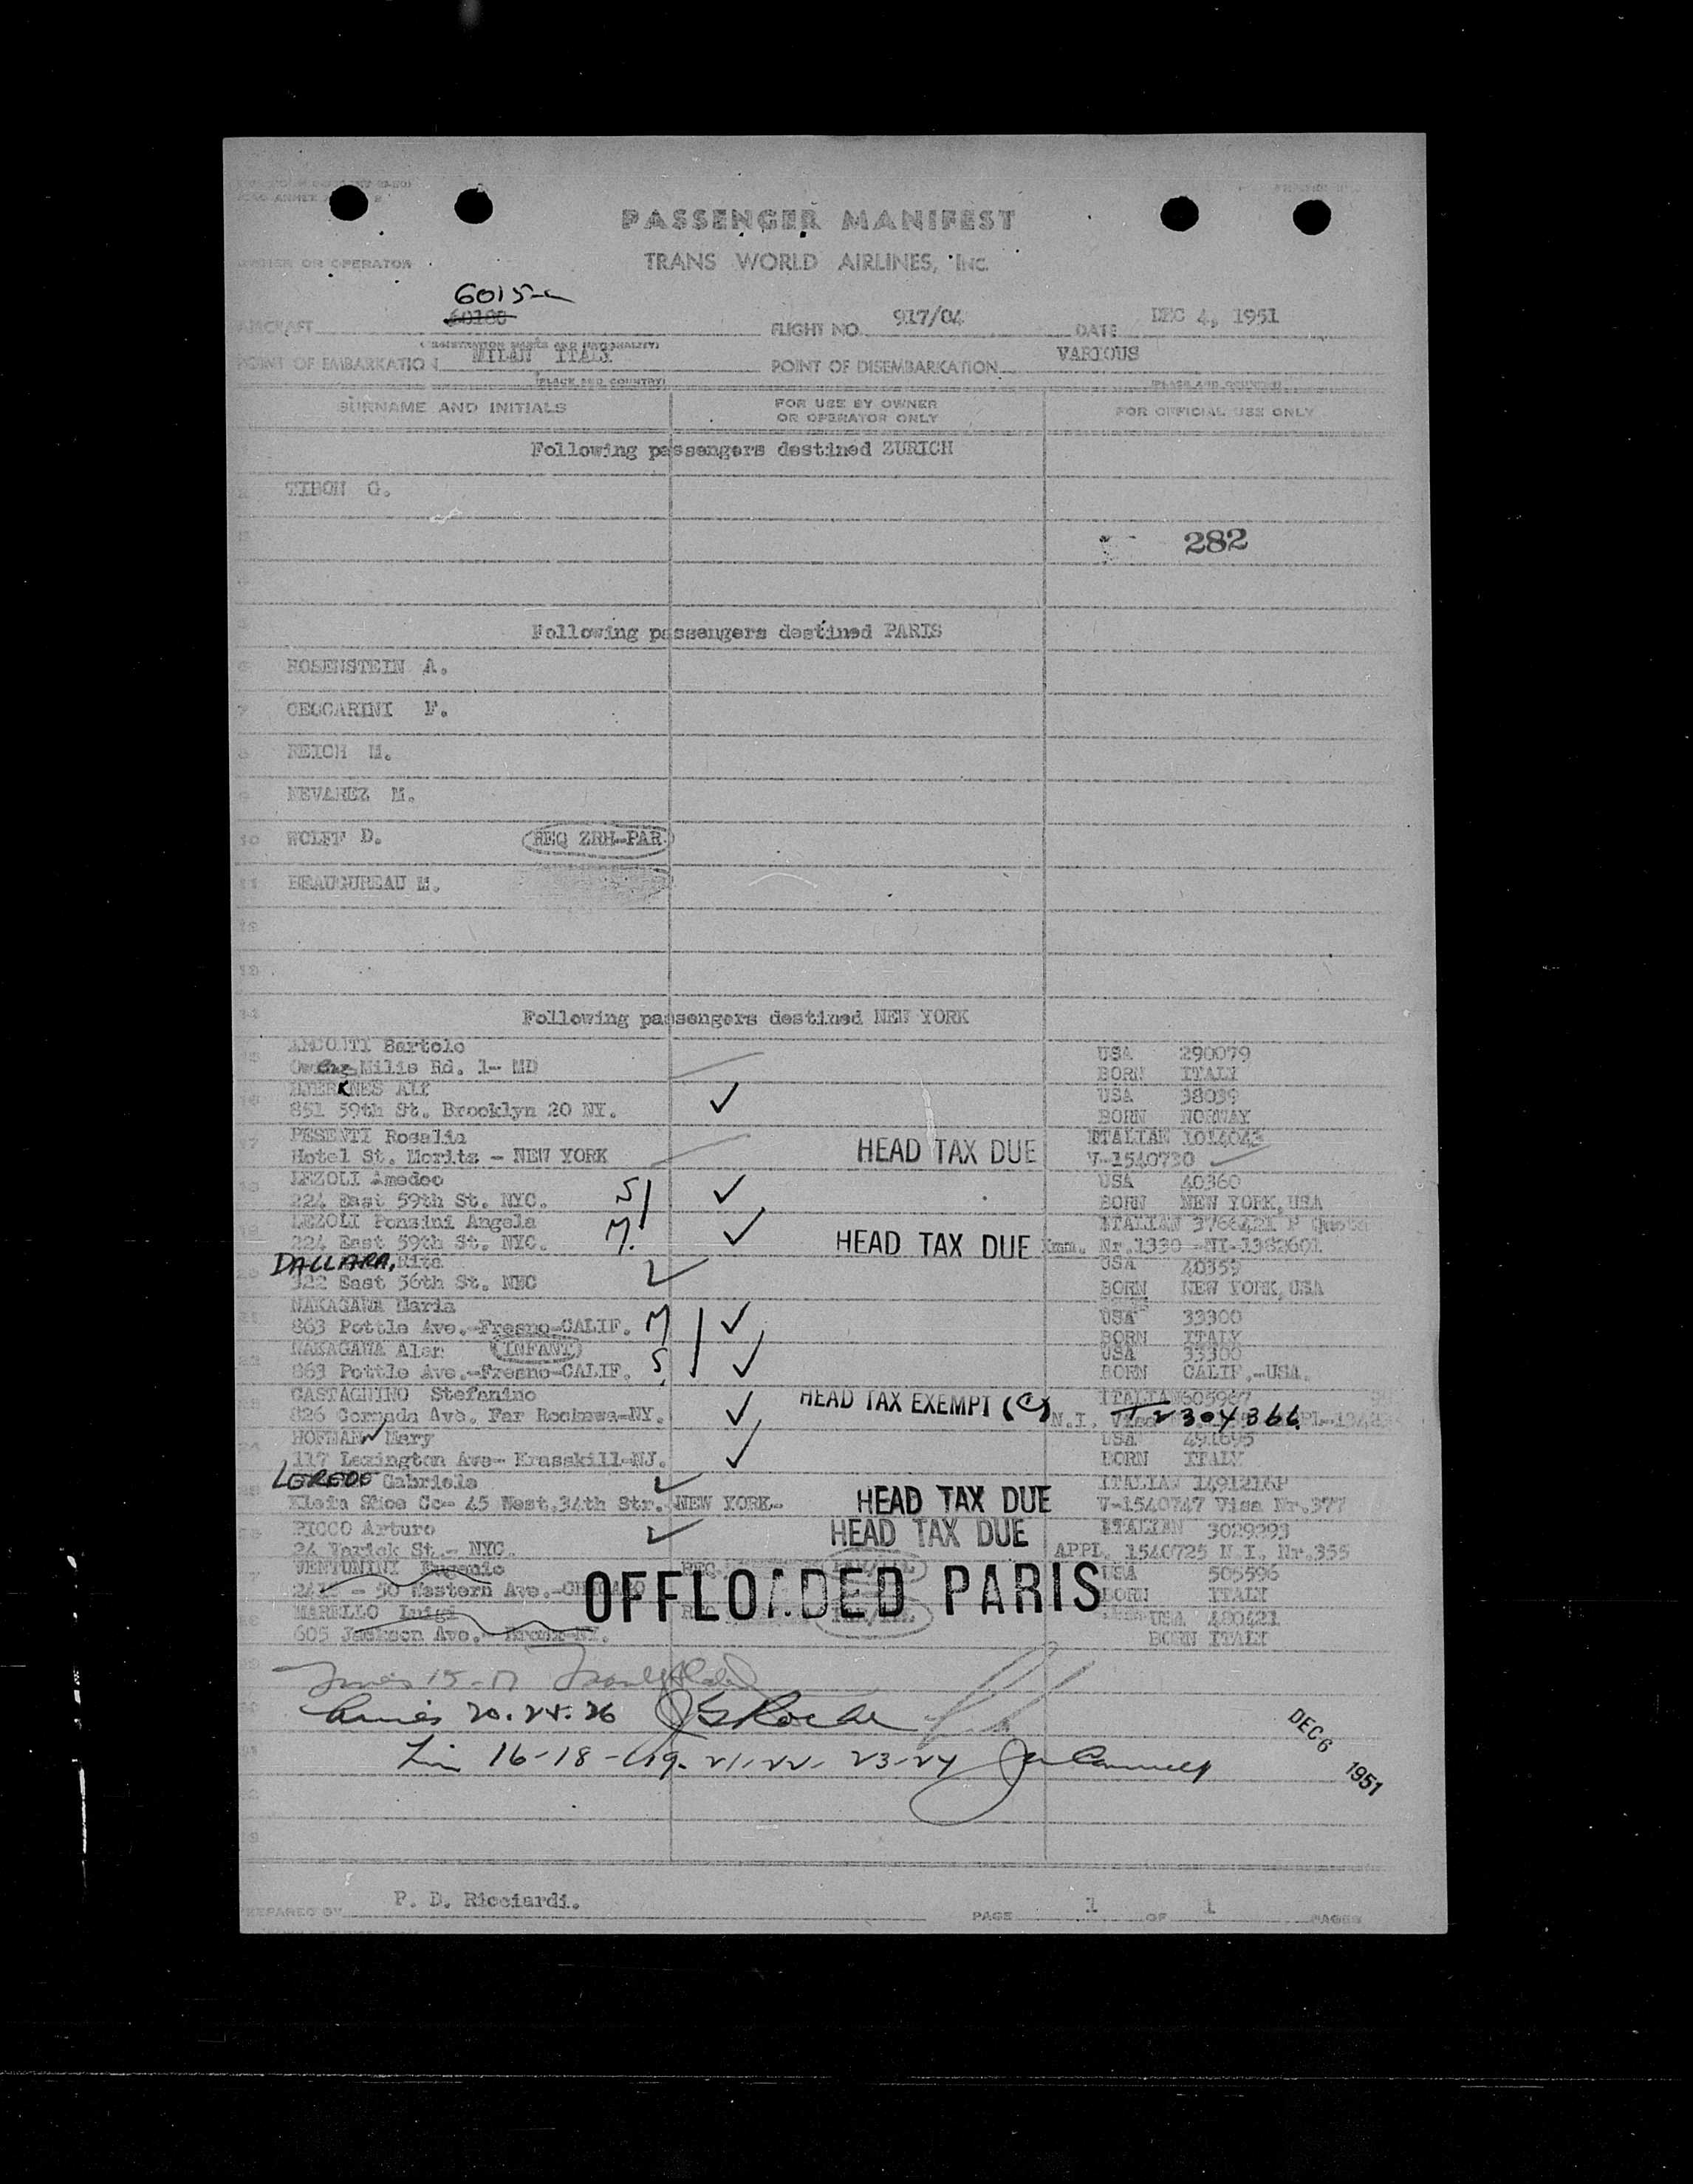 PASSENGER MANIFEST
OWNER OR OPERATOR TRANS WORLD AIRLINES, INC.
6015-C
AIRCRAFT 60100 FLIGHT NO. 917/04 DATE DEC 4, 1951
(REGISTRATION MARKS AND NATIONALITY)
POINT OF EMBARKATION MILAN ITALY POINT OF DISEMBARKATION VARIOUS
(PLACE AND COUNTRY) (PLACE AND COUNTRY)
SURNAME AND INITIALS FOR USE BY OWNER OR OPERATOR ONLY FOR OFFICIAL USE ONLY
Following passengers destined ZURICH
2 TIBON G.
282
Following passengers destined PARIS
6 ROSENSTEIN A.
7 CECCARINI F.
8 REICH M.
9 NEVAREZ M.
10 WOLFF D. REQ ZRH-PAR
11 BEAUGUREAU M.
12
13
14 Following passengers destined NEW YORK
15 Bartolo USA 290079
Owings Mills Rd. 1- MD BORN ITALY
16 BJERKNES Alf USA 38039
851 59th St. Brooklyn 20 NY. BORN NORWAY
17 PESENTI Rosalia ITALIAN 1014043
Hotel St. Moritz - NEW YORK HEAD TAX DUE V-1540730
18 LEZOLI Amedeo S USA 40360
224 East 59th St. NYC. BORN NEW YORK, USA
19 LEZOLI Ponzini Angela M. ITALIAN 376642I P Quota
224 East 59th St. NYC. HEAD TAX DUE Imm. Nr.1330 -NI-1382601
20 DALLARA, Rita USA 40359
322 East 56th St. NYC BORN NEW YORK, USA
21 NAKAGAWA Maria M USA 33300
863 Pottle Ave.-Fresno-CALIF. BORN ITALY
22 NAKAGAWA Alan (INFANT) S USA 33300
863 Pottle Ave.-Fresno-CALIF. BORN CALIF.-USA.
23 CASTAGNINO Stefanino HEAD TAX EXEMPT (C) ITALIAN 605967
826 Cornada Ave. Far Rockawa-NY. N.I. Visa T2304366
24 HOFMANN Mary USA 491695
117 Lexington Ave- NJ. BORN ITALY
25 LEREDO Gabriele ITALIAN 1491216P
Klein Shoe Co- 45 West.34th Str. NEW YORK- HEAD TAX DUE V-1540747 Visa Nr.377
26 PICCO Arturo HEAD TAX DUE ITALIAN 3029293
24 Varick St.- NYC. APPL. 1540725 N.I. Nr.355
VENTURINI Eugenio REQ. USA 505596
241 - 50 Western Ave.-CHICAGO OFFLOADED PARIS BORN ITALY
MARELLO Luigi REQ. USA 480421
605 Jackson Ave. Bronx-NY. BORN ITALY
Lines 15-17
Lines 20.25.26 JG Roche
Lin 16-18-19. 21.22. 23-24
DEC 6 1951
PREPARED BY P. D. Ricciardi. PAGE 1 OF 1 PAGES